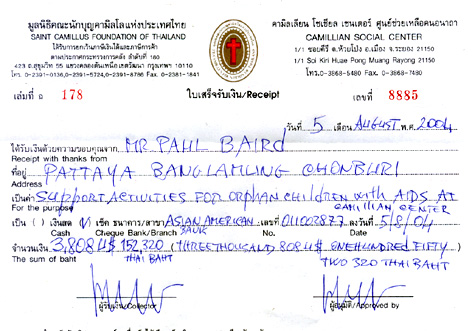 มูลนิธิคณะนักบุญคามิลโลแห่งประเทศไทย
SAINT CAMILLUS FOUNDATION OF THAILAND
ได้รับการยกเว้นภาษีเงินได้และภาษีการค้า
ตามประกาศกระทรวงการคลัง ลำดับที่ 180
โทร. 0-2391-0136, 0-2391-5724, 0-2391-8786 Fax. 0-2381-1841
คามิลเลียน โซเชียล เซนเตอร์ ศูนย์ช่วยเหลือคนอนาถา
CAMILLIAN SOCIAL CENTER
1/1 ซอยคีรี ต.ห้วยโป่ง อ.เมือง จ.ระยอง 21150
1/1 Soi Kiri Huae Pong Muang Rayong 21150
โทร. 0-3868-5480 แฟกซ์. 0-3868-7480
เล่มที่ a 178
ใบเสร็จรับเงิน/Receipt
เลขที่ 8885
วันที่ 5 เดือน AUGUST พ.ศ. 2004
ได้รับเงินด้วยความขอบคุณจาก MR PAUL BAIRD
Receipt with thanks from
ที่อยู่ PATTAYA BANGLAMUNG CHONBURI
Address
เป็นค่า SUPPORT ACTIVITIES FOR ORPHAN CHILDREN WITH AIDS AT
For the purpose CAMILLIAN CENTER
เป็น ( ) เงินสด เช็ค ธนาคาร/สาขา ASIAN AMERICAN เลขที่ 011003877 ลงวันที่ 5/8/04
Cash Cheque Bank/Branch BANK No. Date
จำนวนเงิน 3,808 4$ 152,320 (THREE THOUSAND 808 4$ ONE HUNDRED FIFTY
The sum of baht THAI BAHT TWO 320 THAI BAHT
ผู้รับเงิน/Collector
ผู้อนุมัติ/Approved by